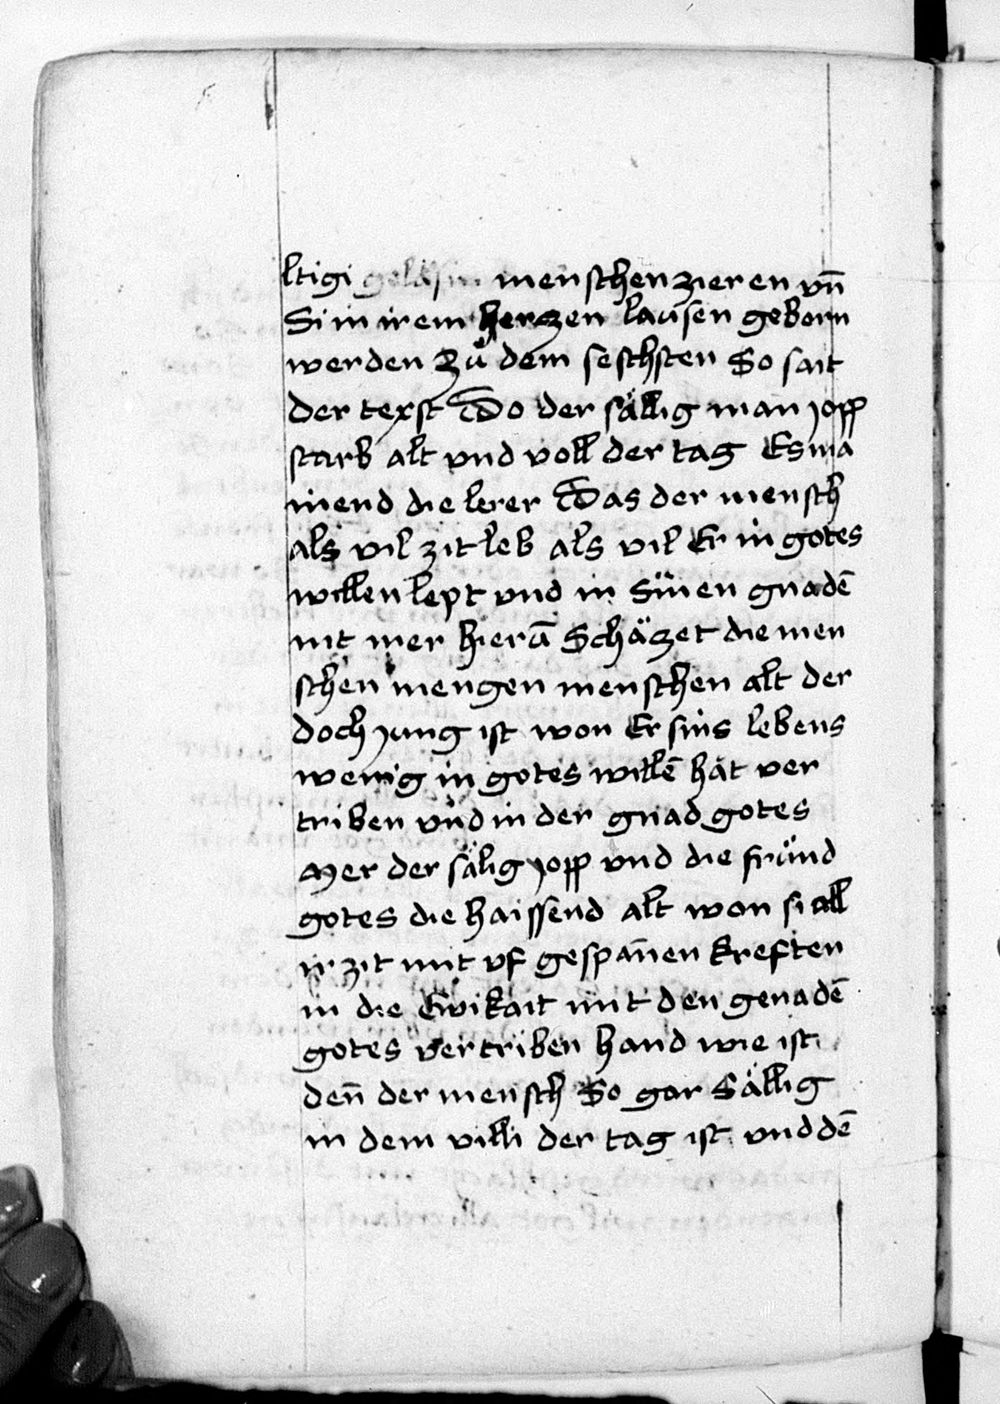 ltigi geläsin menschen zieren vn̄
Si in irem herzen lausen geborn
werden Zů dem seschsten So sait
der texst Do der sällig man jopp
starb alt vnd voll der tag Es ma
inend die lerer Das der mensch
als vil zit leb als vil Er in gotes
willen lept vnd in Sinen gnadē
nit mer hierā Schäzet die men
schen mengen menschen alt der
doch jung ist won Er sins lebens
wenig in gotes willē hät ver
triben vnd in der gnad gotes
Mer der sälig jopp vnd die fründ
gotes die haissend alt won si all
ir zit mit vf gespan̄en kreften
in die Ewikait mit den genadē
gotes vertriben hand wie ist
den̄ der mensch So gar Sällig
in dem villi der tag ist vnd dē